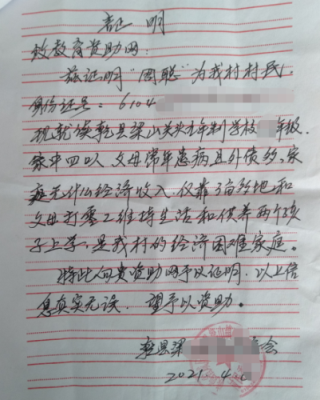 证明
致教育资助网:
兹证明“周聪”为我村村民,
身份证号:6104
现就读乾县梁山关头九年制学校 年级,
家中四口人,父母常年患病且外债多,家
庭无什么经济收入,仅靠3亩多地和
父母打零工维持生活和供养两个孩
子上学,是我村的经济困难家庭。
特此向贵资助网予以证明,以上信
息真实无误,望予以资助。
乾县梁 会
2021.4.